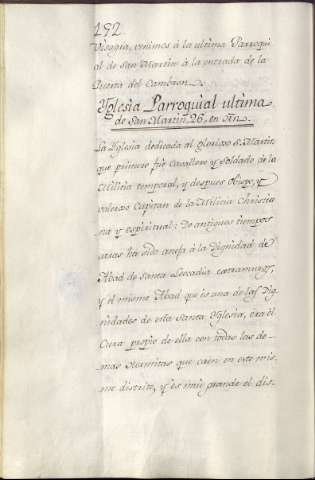 192
Visagra, venimos á la ultima Parroqui
al de san Martin á la entrada de la
Puerta del Cambron.
Yglesia Parroquial ultima
de San Martin 26, en Orn.
La Yglesia dedicada al glorioso Sn. Martin
que primero fue Cavallero y soldado de la
Milicia temporal, y despues Obispo, y
valeroso Capitan de la Milicia Christia
na y espiritual: De antiguos tiempos
atras ha sido anexa á la Dignidad de
Abad de Santa Leocadia extramuros,
y el mismo Abad que es una de las Dig
nidades de esta Santa Yglesia, era el
Cura propio de ella con todas las de
mas Hermitas que caen en este mis
mo distrito, y es mui grande el dis.